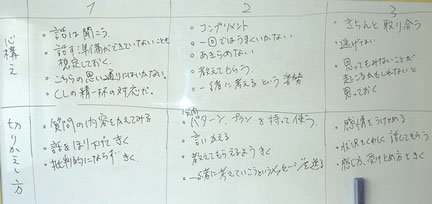 1
2
3
心構え
・話は聞こう
・話す準備ができていないことも
想定しておく.
・こちらの思い通りにはいかない.
・CLの精一杯の対応だ.
・コンプリメント
・一回ではうまくいかない
・あきらめない
・教えてもらう
・一緒に考えるという姿勢
・きちんと取り合う
・逃げない
・思ってもみないことが
起こるかもしれないと
思っておく
切りかえし方
・質問の内容をかえてみる
・話をほり下げてきく
・批判的にならずきく
・パターン、プランを持って使う
・言いかえる
・教えてもらえるようきく
・一緒に考えていこうというメッセージを送る
・感情をうけとめる
・状況をくわしく話してもらう
・感じ方、受けとめ方をきく